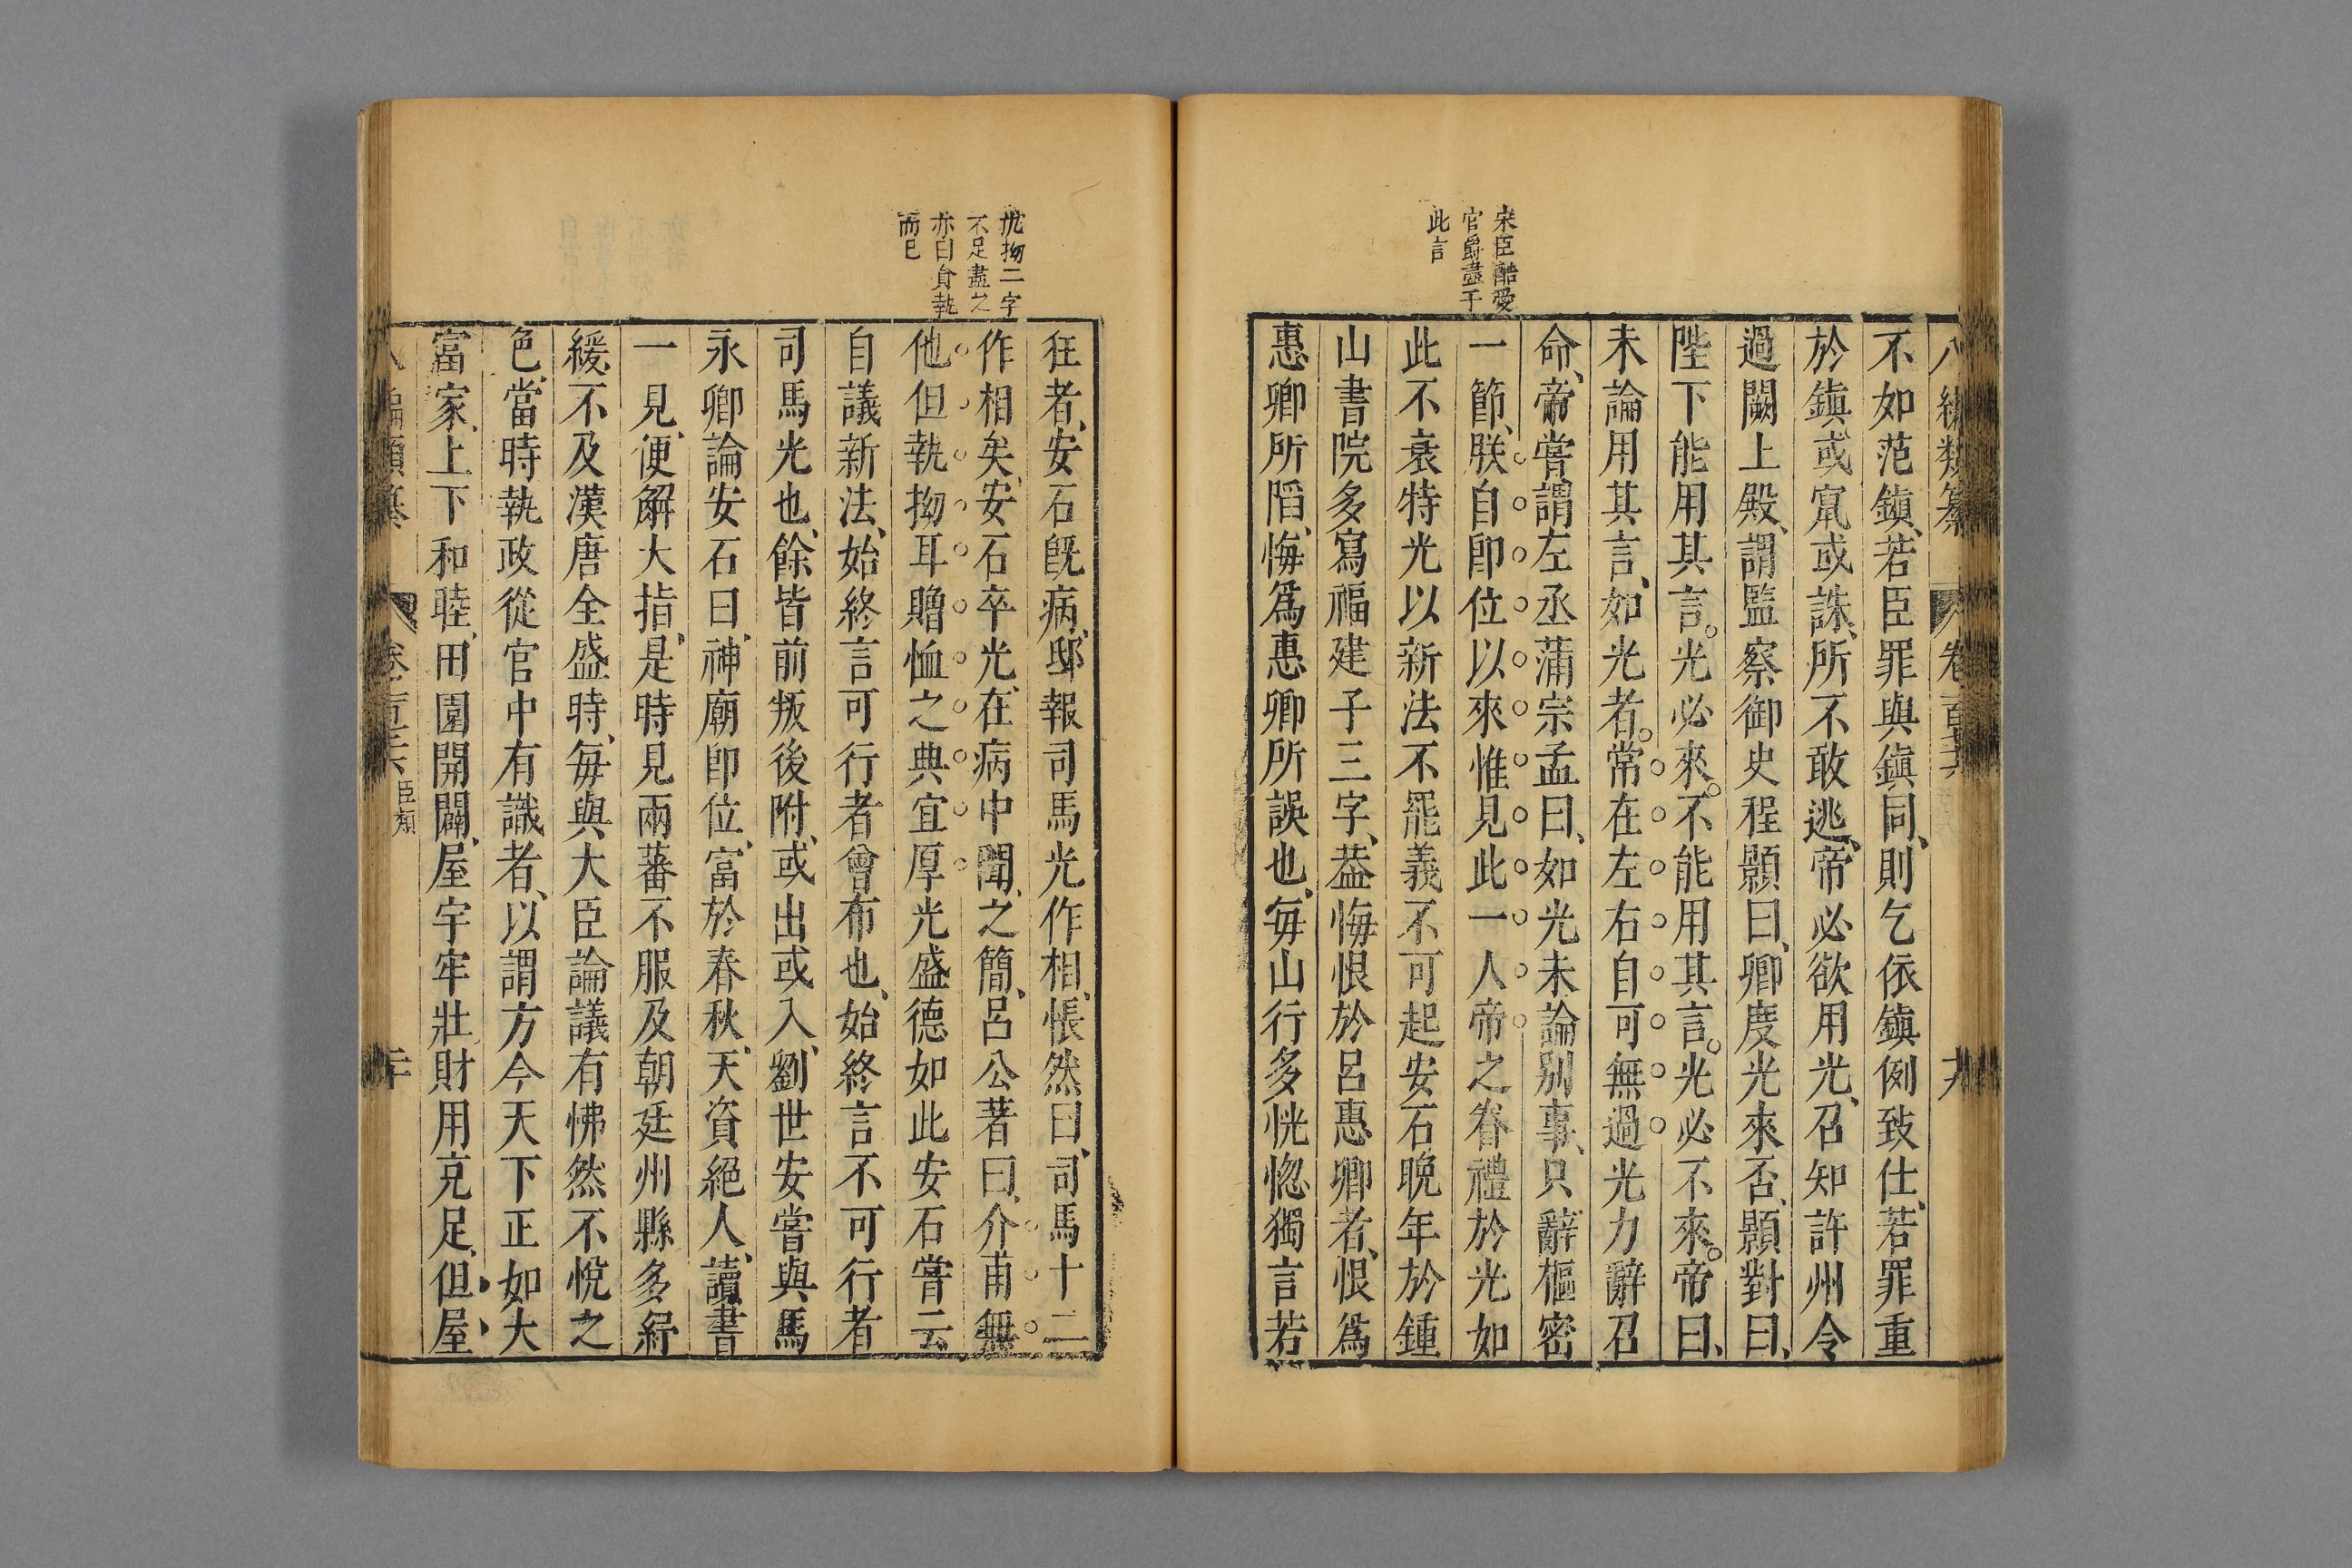 宋臣酷愛
官爵盡于
此言
八編類纂 卷百六 十九
不如范鎮、若臣罪與鎮同、則乞依鎮例致仕、若罪重
於鎮、或竄或誅、所不敢逃、帝必欲用光、召知許州、令
過闕上殿、謂監察御史程顥曰、卿度光來否、顥對曰、
陛下能用其言。光必來。不能用其言。光必不來。帝曰、
未論用其言、如光者。常在左右自可無過光力辭召
命、帝嘗謂左丞蒲宗孟曰、如光未論別事、只辭樞密
一節、朕自卽位以來惟見此一人帝之眷禮於光如
此不衰特光以新法不罷義不可起安石晚年於鍾
山書院多寫福建子三字、葢悔恨於呂惠卿者、恨爲
惠卿所䧟、悔爲惠卿所誤也、每山行多恍惚獨言若
抝二字
不足盡之
亦曰自執
而已
狂者、安石旣病、邸報司馬光作相、悵然曰、司馬十二
作相矣、安石卒光、在病中聞、之簡、呂公著曰、介甫無
他但執抝耳贈恤之典宜厚光盛德如此安石嘗云
自議新法、始終言可行者曾布也、始終言不可行者
司馬光也、餘皆前叛後附、或出或入、劉世安嘗與馬
永卿論安石曰、神廟卽位、富於春秋、天資絕人、讀書
一見、便解大指、是時見兩蕃不服及朝廷州縣多紓
緩、不及漢唐全盛時、每與大臣論議有怫然不悅之
色、當時執政從官中有識者、以謂方今天下正如大
富家、上下和睦、田園開闢、屋宇牢壯財用充足、但屋
編類纂 卷 臣類